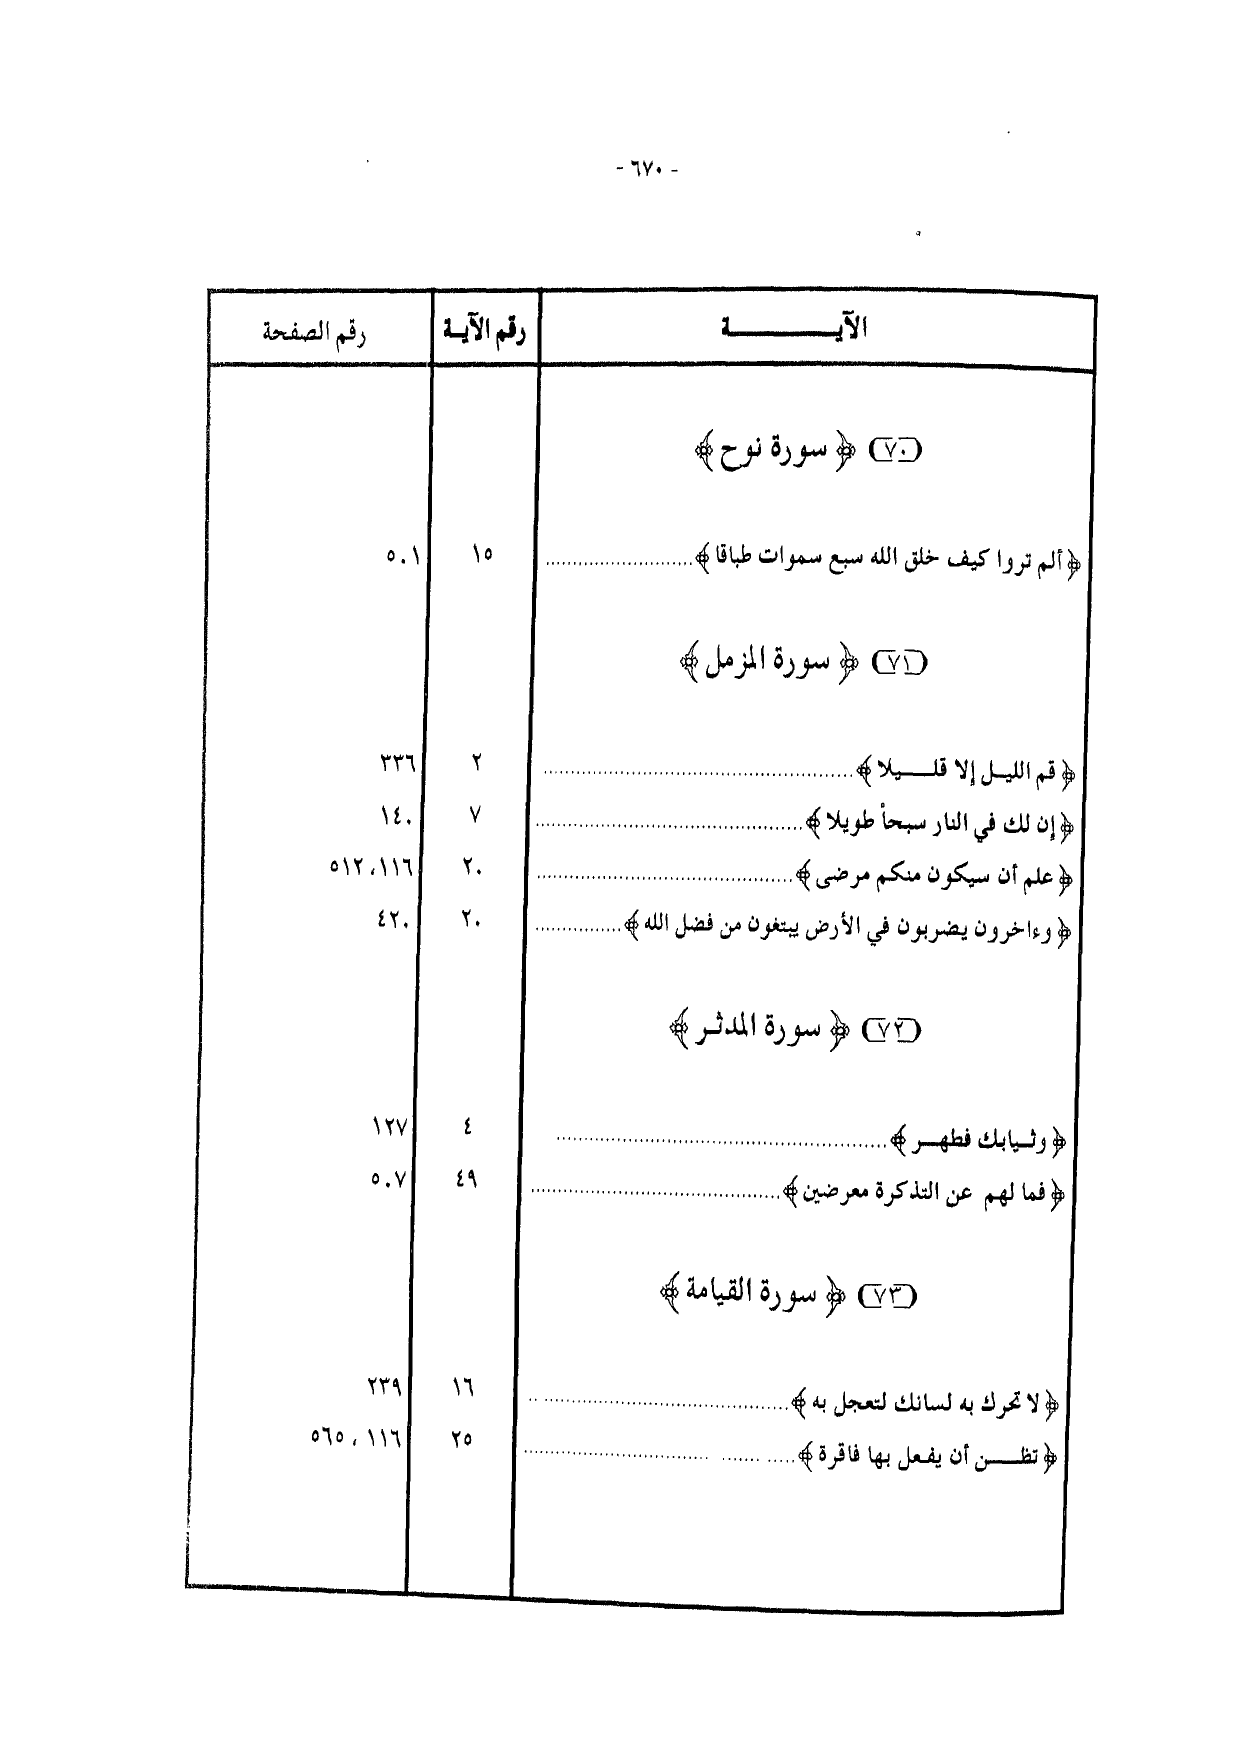 - ٦٧٠ -
الآيـــــــــة رقم الآيـة رقم الصفحة
(٧٠) ﴿ سورة نوح ﴾
﴿ ألم تروا كيف خلق الله سبع سموات طباقا ﴾........................ ١٥ ٥٠١
(٧١) ﴿ سورة المزمل ﴾
﴿ قم الليـل إلا قلـــيلا ﴾........................ ٢ ٣٣٦
﴿ إن لك في النار سبحاً طويلا ﴾........................ ٧ ١٤٠
﴿ علم أن سيكون منكم مرضى ﴾........................ ٢٠ ١١٦، ٥١٢
﴿ وءاخرون يضربون في الأرض يبتغون من فضل الله ﴾............... ٢٠ ٤٢٠
(٧٢) ﴿ سورة المدثـر ﴾
﴿ وثـيابك فطهـر ﴾........................ ٤ ١٢٧
﴿ فما لهم عن التذكرة معرضين ﴾........................ ٤٩ ٥٠٧
(٧٣) ﴿ سورة القيامة ﴾
﴿ لا تحرك به لسانك لتعجل به ﴾........................ ١٦ ٢٣٩
﴿ تظـــن أن يفعل بها فاقرة ﴾........................ ٢٥ ١١٦ ، ٥٦٥